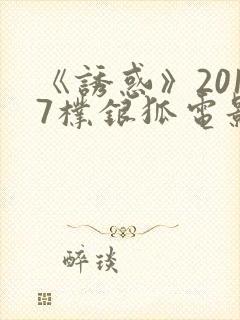 《誘惑》201
7樸銀狐電影
醉琰